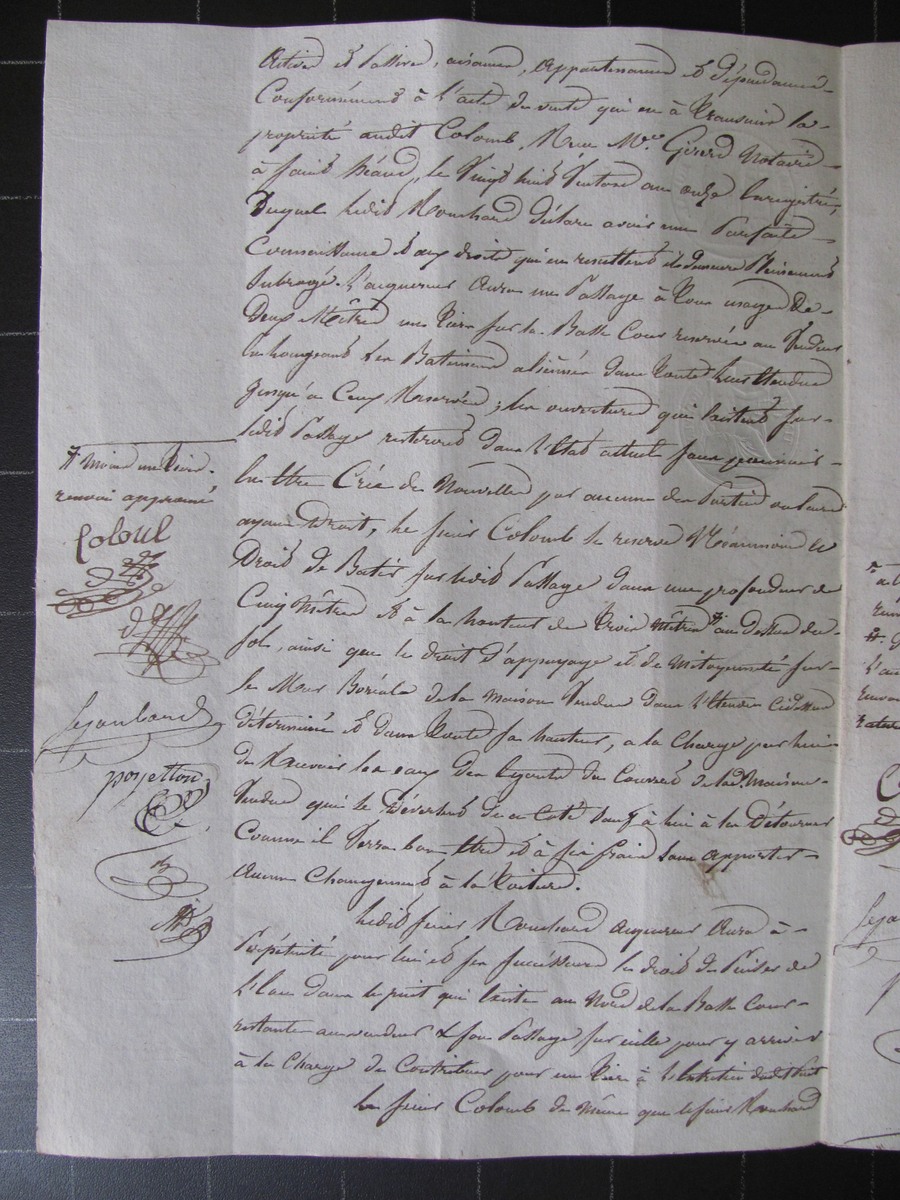 active et passive, aisances, appartenances et dépendances
Conformément à l'acte de vente qui en à transmis la
propriété audit Colomb, Reçu Me. Girard Notaire
à saint, le Vingt huit Ventose an onze Enregistré,
Duquel ledit Rouchard déclare avoir une Parfaite
Connaissance & aux droits qui en resultent il demeure Pleinement
Subrogé. L'acquereur Aura un Passage à son usage De
Deux Mêtres un tiers sur la Basse Cour reservée au Vendeur
en longeant les Batiments aliénnés dans toute leur Etendue
jusqu'à Ceux Reservés; les ouvertures qui Existent sur
ledit Passage resteront dans l'Etat actuel sans pouvoir
En être Créé de Nouvelles par aucune des Parties ou leurs
ayans Droit, le sieur Colomb se reserve Néanmoins le
Droit de Batir sur ledit Passage dans une profondeur de
Cinq Mêtres & à la hauteur de trois mêtres # au dessus du
sol, ainsi que le droit d'appuyage et de mitoyenneté sur
le Mur Boréal de la maison Vendue dans l'Etendue Cidessus
déterminée et dans toute sa hauteur, a la Charge par lui
de Recevoir les eaux des Egouts du Couvert de lad. Maison
Vendue qui se Déversent de ce Coté sauf à lui à les Détourner
Comme il Verra bon être et à ses frais sans apporter
Aucun Changement à la Toiture.
Ledit sieur Rouchard acquereur Aura à
Perpétuité pour lui et ses successeurs le droit de Puiser de
l'Eau dans le puit qui Existe au Nord de la Basse Cour
restante au vendeur & son Passage sur icelle pour y arriver
à la Charge de Contribuer pour un tiers à l'Entretien dudit Puit
Le sieur Colomb de même que le sieur Rouchard
# Moins un tiers.
renvoi approuvé
Coloul
Lejoubard
poyetton